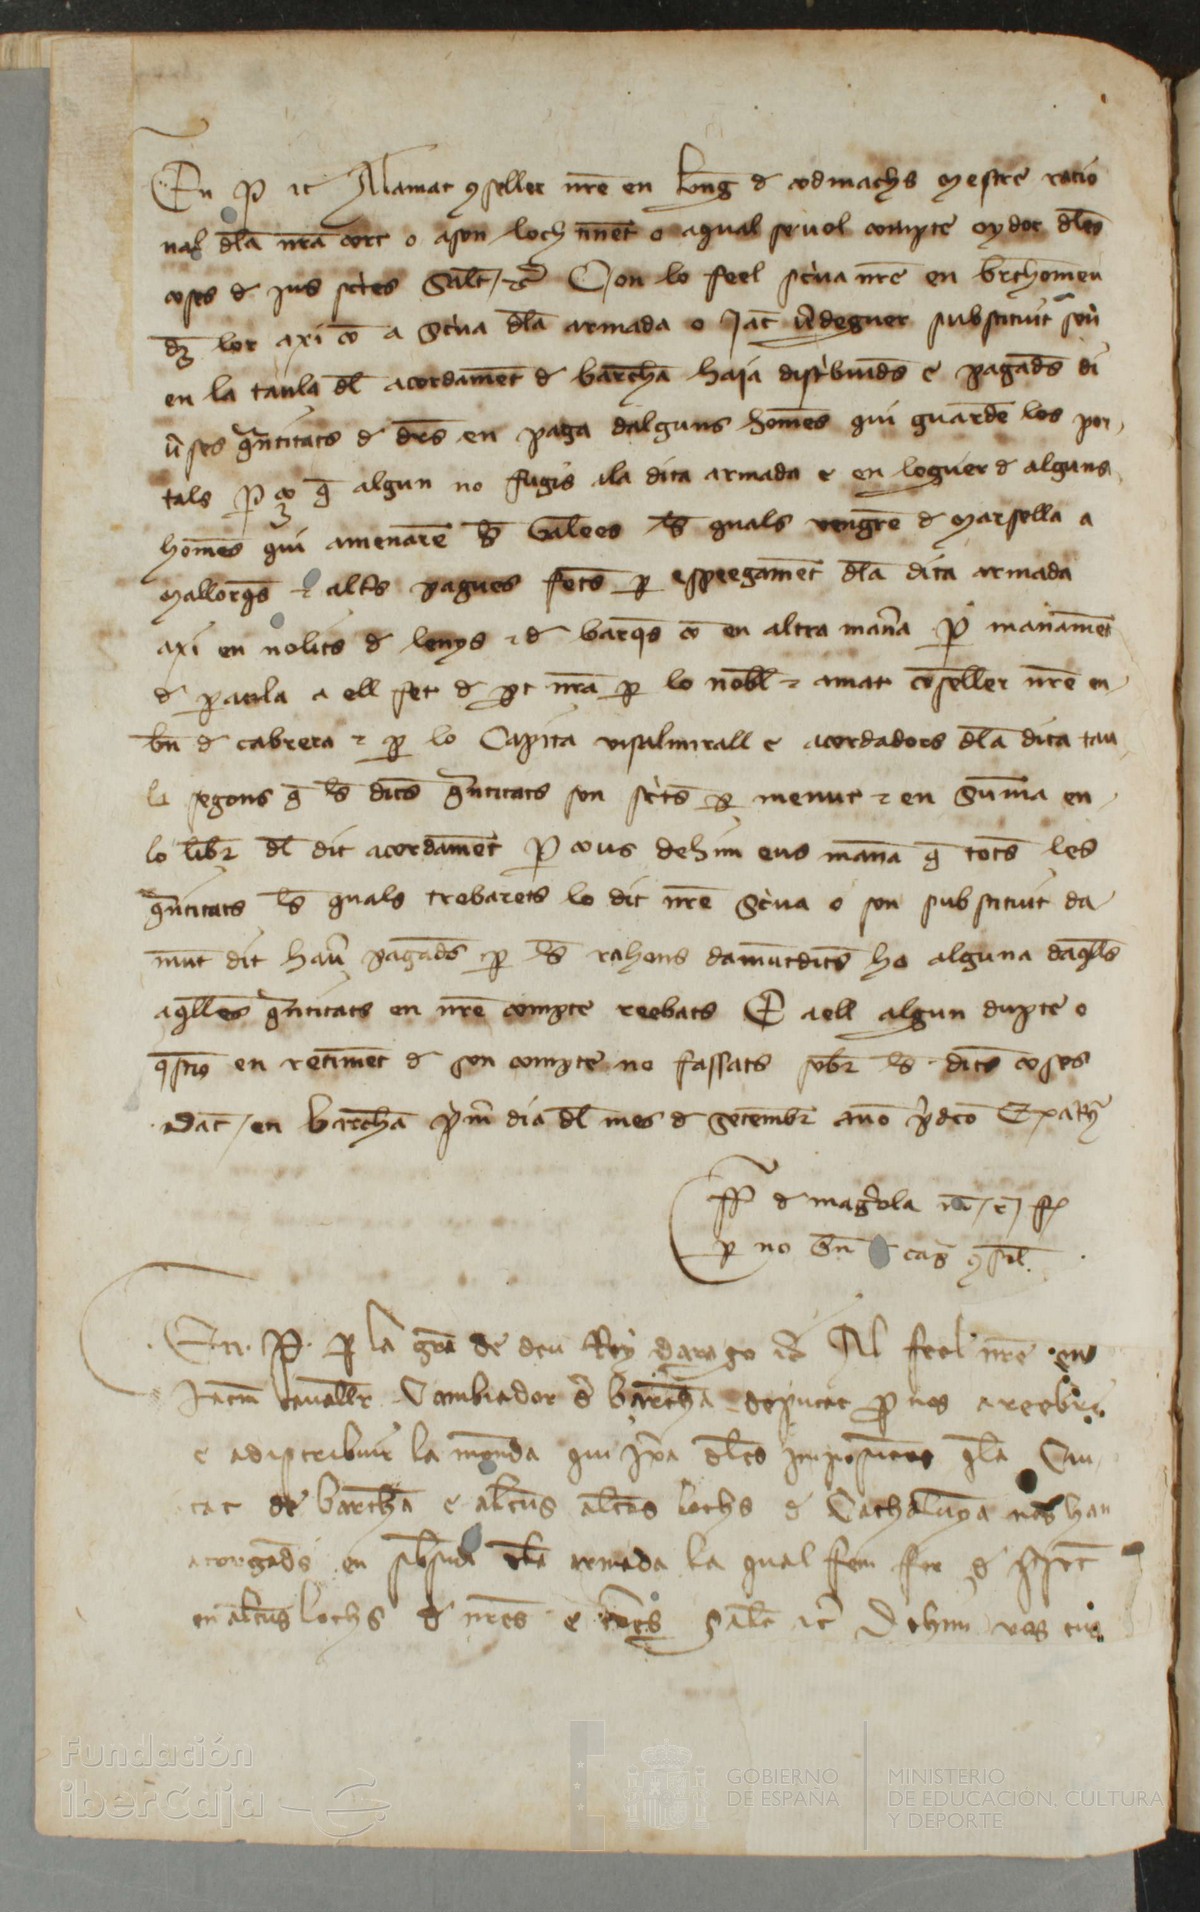 En P etc Al amat conseller nr̃e en bñg de codinachs Mestre racio
nal dl̃a nr̃a cort o a son loch tinẽt o a qual se uol compte oydor dl̃es
coses de jus scr̀tes Salt̃ / etc̃ Con lo feel scr̀ua nr̃e en br̃thomeu
lor axi cõ a Scr̀ua dl̃a armada o Jac̃ u̾deguer substituit seu
en la taula dl̃ acordamẽt de barch̃a haia distr̀buids̃ e pagads̃ di
u̾ses qñtitats de drs̃ en paga dalguns homẽs qui guardẽ los por
tals p ço q̃ algun no fugis a la dita armada e en loguer de alguns
homẽs qui amenarẽ ls̃ Galees ls̃ quals vengrẽ de Marsella a
Mallorqs̃ e altr̃s pagues fetes̃ p espeegamẽt dl̃a dita armada
axi en nolits de lenys e de barqs̃ cõ en altra manr̃a p manamẽt
de paraula a ell fet de pt nr̃a p lo nobl̃ e amat cõseller nr̃e en
bñ de cabrera e p lo Capita visalmirall e acordadors dl̃a dita tau
la segons q̃ ls̃ dits̃ qñtitats son scr̀ts̃ p menut e en Suma en
lo libr̃ dl̃ dit acordamẽt p ço us dehim eus manã q̃ totes̃ les
qñtitats ls̃ quals trobarets lo dit nr̃e Scr̀ua o son substituit da
mũt dit hau̾ pagads̃ p ls̃ rahons damũtdits̃ ho alguna daqll̃s
aqll̃es qñtitats en nr̃e compte reebats E a ell algun dupte o
qs̃tio en retimẽt de son compte no fassats sobr̃ ls̃ dits̃ coses
Dat̃ / en barch̃a pr̀m̃ dia dl̃ mes de Setembr̃ año p̀dco Expat̀y
de magr̃ola
p no bñ cap̃
En P. p la grã de deu Rey darago etc̃ Al feel nr̃e en
Jacm̃ cauall̃r Cambiador de barch̃a deputat p nos a reebre
e a distribuir la mon̾da qui ix̾a dl̃es imposicõs q̃ la Ciu
tat de barch̃a e alc̃uns alt̃es lochs de Cathaluỹa nos han
atorgads̃ en subsidi dl̃a armada la qual fem fer de psẽt
en alc̃uns lochs de nr̃es e salt̃ etc̃ Dehim vos eus
Fundación
iberCaja
GOBIERNO
DE ESPAÑA
MINISTERIO
DE EDUCACIÓN, CULTURA
Y DEPORTE